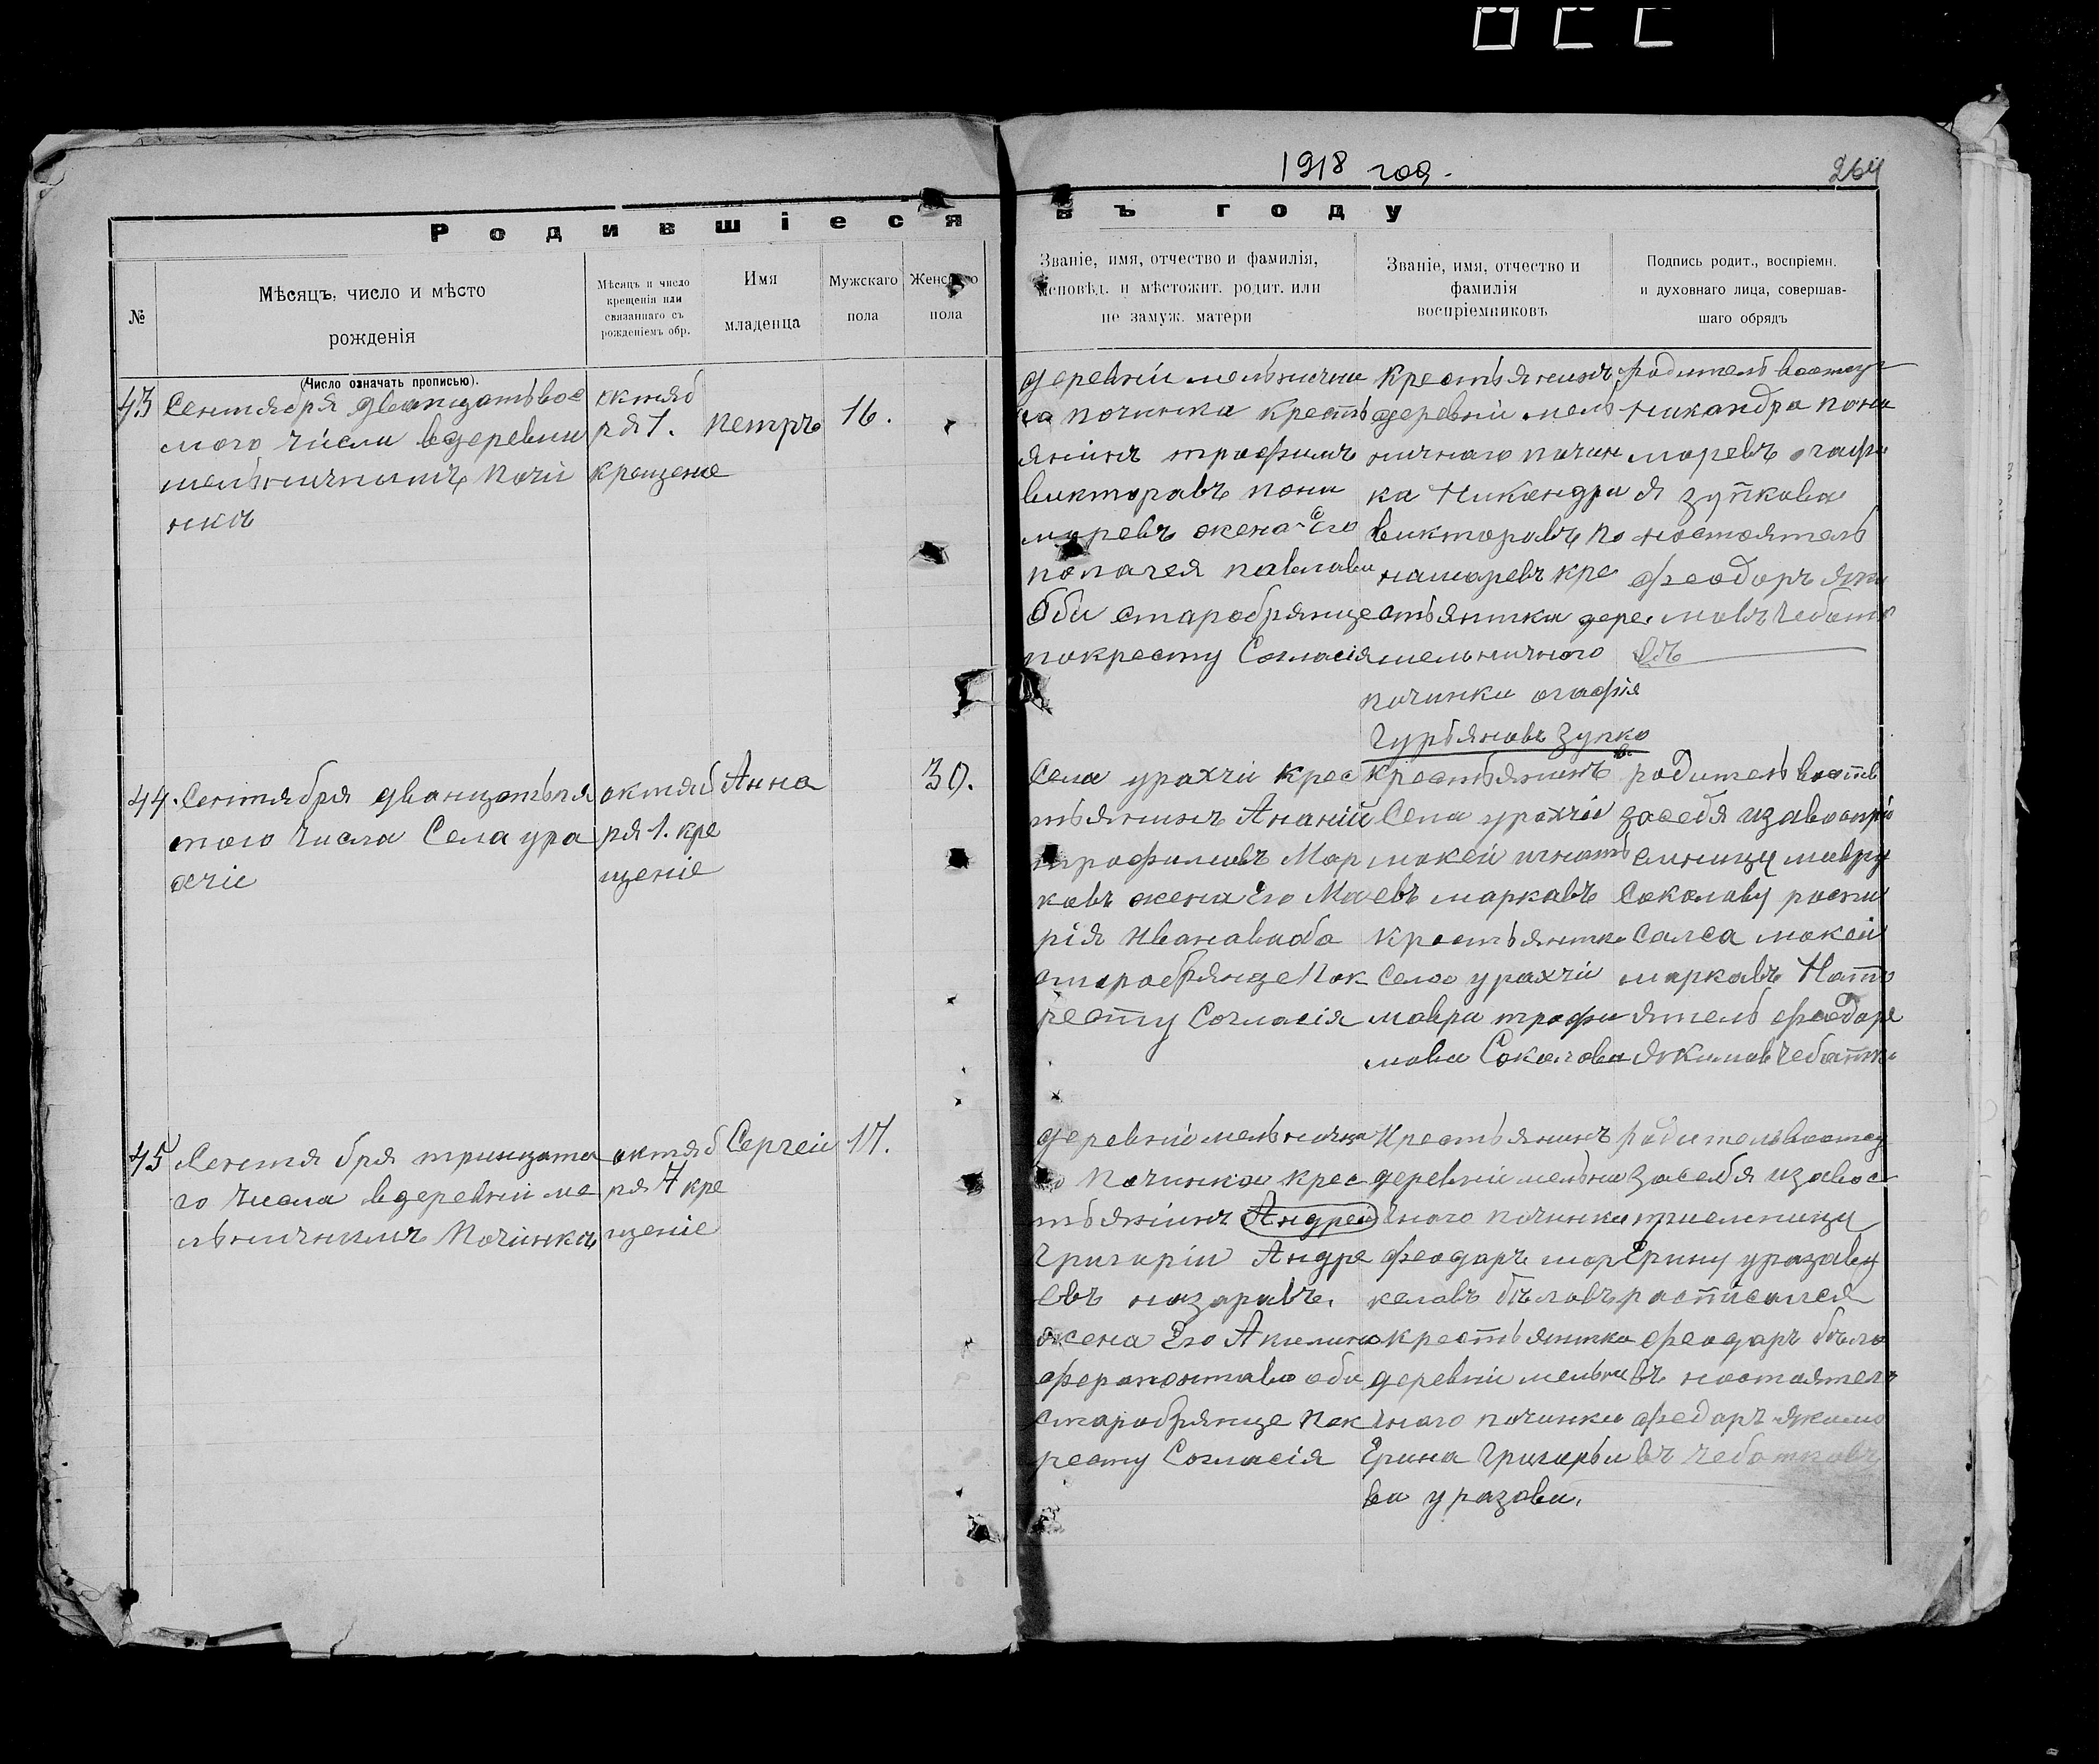 1918 год.
264
Родившіеся въ году
№
Мѣсяцъ, число и мѣсто
рожденія
(Число означать прописью).
Мѣсяцъ и число
крещенія или
связаннаго съ
рожденіемъ обр.
Имя
младенца
Мужскаго
пола
Женскаго
пола
Званіе, имя, отчество и фамилія,
исповѣд. и мѣстожит. родит. или
не замуж. матери
Званіе, имя, отчество и
фамилія
воспріемниковъ
Подпись родит., воспріемн.
и духовнаго лица, совершав-
шаго обрядъ
43
Сентября дванцатьвос
мого числа вдеревни
мельничнымъ почи
нкъ
октяб
ря 1.
крещение
петръ
16.
деревни мельнична
го починка крестъ
янинъ трофимъ
викторавъ пона
моревъ жена Его
попагея павлава
Оби старобрянце
покресту Согласія
крестьянинъ
деревни мель
ничнаго почин
ка Никандра
викторавъ по
наморевъ кре
стьянтка дере.
мельничного
починка агафия
Гурьяновъ Зупко
родитель
никандра пона
моревъ огафи
я зупкова
ностоятель
феодоръ яки
мовъ чебатк
овъ
44.
Сентября дванцатьпя
того числа Села ура
хчи
октяб
ря 1. кре
щеніе
Анна
30.
Села урахчи крес
тьянинъ Ананий
трофимавъ Мар
ковъ жена Его Ма
рія Ивановаоба
старобрянце Пок
ресту Согласія
крестьянинъ
Села урахчи
мокей игнать
евъ маркавъ
крестьянтка
Села урахчи
мавра трофи
мова Соколова
родитель
засебя изавоспріо
емницу мавру
Соколаву роспи
салса мокей
маркавъ Насто
ятель феодаръ
якимовъ чебатк
45
Сентября тринцата
го числа вдеревни ме
льничнымъ Починка
октяб
ря 7 кре
щеніе
Сергеи
17.
деревни мельнична
го Починка крес
тьянинъ Андрей
Григории Андре
евъ назаравъ.
жена Его Акилина
ферапонтава оби
старобрянце пок
ресту Согласія
Крестьянинъ
деревни мельни
чного починка
феодаръ мар
келавъ бѣловъ
крестьянтка
деревни мельни
чного починка
Ерина Григорьи
ва уразова.
родитель
засебя изавос
приемницу
Ерину уразаву
росписался
феодаръ бѣло
въ ностоятель
федаръ якимо
въ чебатковъ